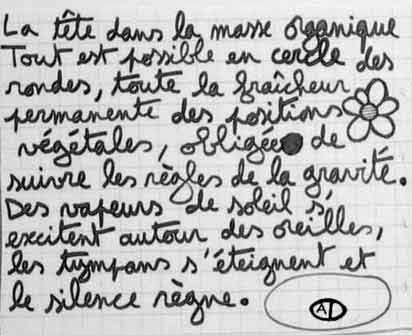 La tête dans la masse organique
Tout est possible en cercle des
rondes, toute la fraîcheur
permanente des positions
végétales, obligée de
suivre les règles de la gravité.
Des vapeurs de soleil s'
excitent autour des oreilles,
les tympans s'éteignent et
le silence règne.
AD